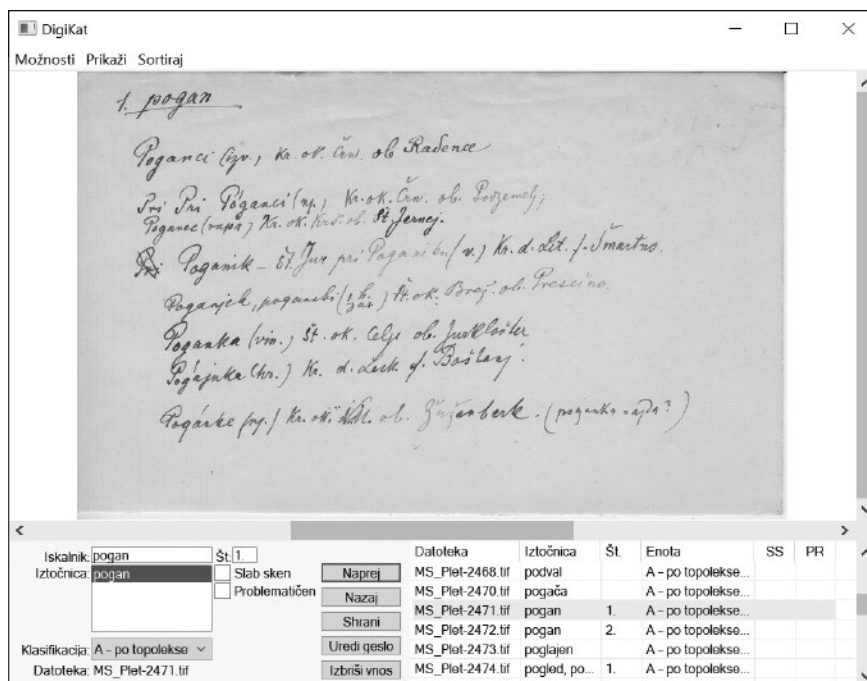 DigiKat
Možnosti Prikaži Sortiraj
1. pogan
Poganci (izv.) Kr. ok. Črn. ob Radence
Pri Pri Póganci (nj.) Kr. ok. Črn. ob. Podzemelj;
Poganec (vas) Kr. ok. Krš. ob. Št. Jernej.
Pri Poganik – Št. Jur pri Poganiku (v.) Kr. d. Lit. f. Šmartno.
Poganjek, Št. ok. Brež. ob. Presečno.
Poganka (vin.) Št. ok. Celje ob. Jurklošter
(hr.) Kr. d. Lesk. f. Boštanj.
Pogánke (nj.) Kr. ok. ob. Žužemberk. (poganka = ajda?)
Iskalnik: pogan Št: 1.
Iztočnica: pogan
Slab sken
Problematičen
Naprej
Nazaj
Shrani
Uredi geslo
Izbriši vnos
Klasifikacija: A - po topolekse
Datoteka: MS_Plet-2471.tif
Datoteka Iztočnica Št. Enota SS PR
MS_Plet-2468.tif podval A - po topolekse...
MS_Plet-2470.tif pogača A - po topolekse...
MS_Plet-2471.tif pogan 1. A - po topolekse...
MS_Plet-2472.tif pogan 2. A - po topolekse...
MS_Plet-2473.tif poglajen A - po topolekse...
MS_Plet-2474.tif pogled, po... 1. A - po topolekse...